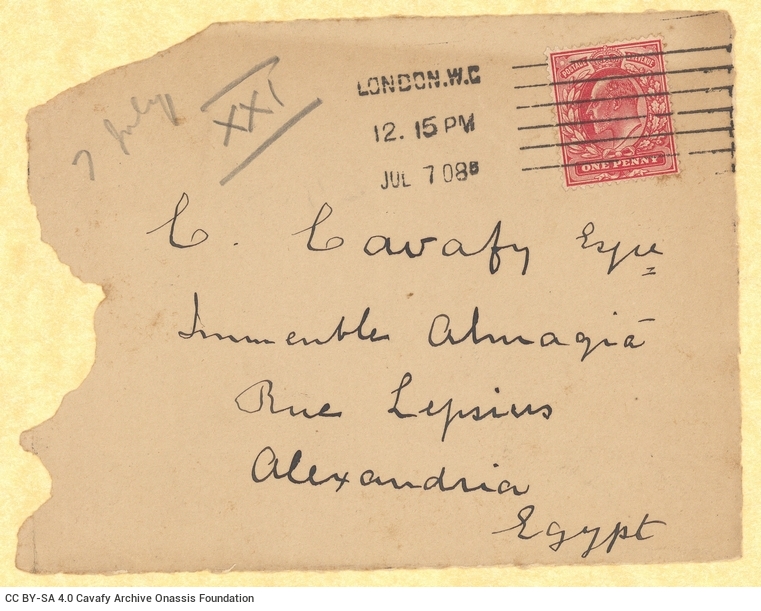 7 July
XXI
LONDON.W.C
12. 15 PM
JUL 7 08
POSTAGE REVENUE
ONE PENNY
C. Cavafy Esqre
Immeuble Almagià
Rue Lepsius
Alexandria
Egypt
CC BY-SA 4.0 Cavafy Archive Onassis Foundation